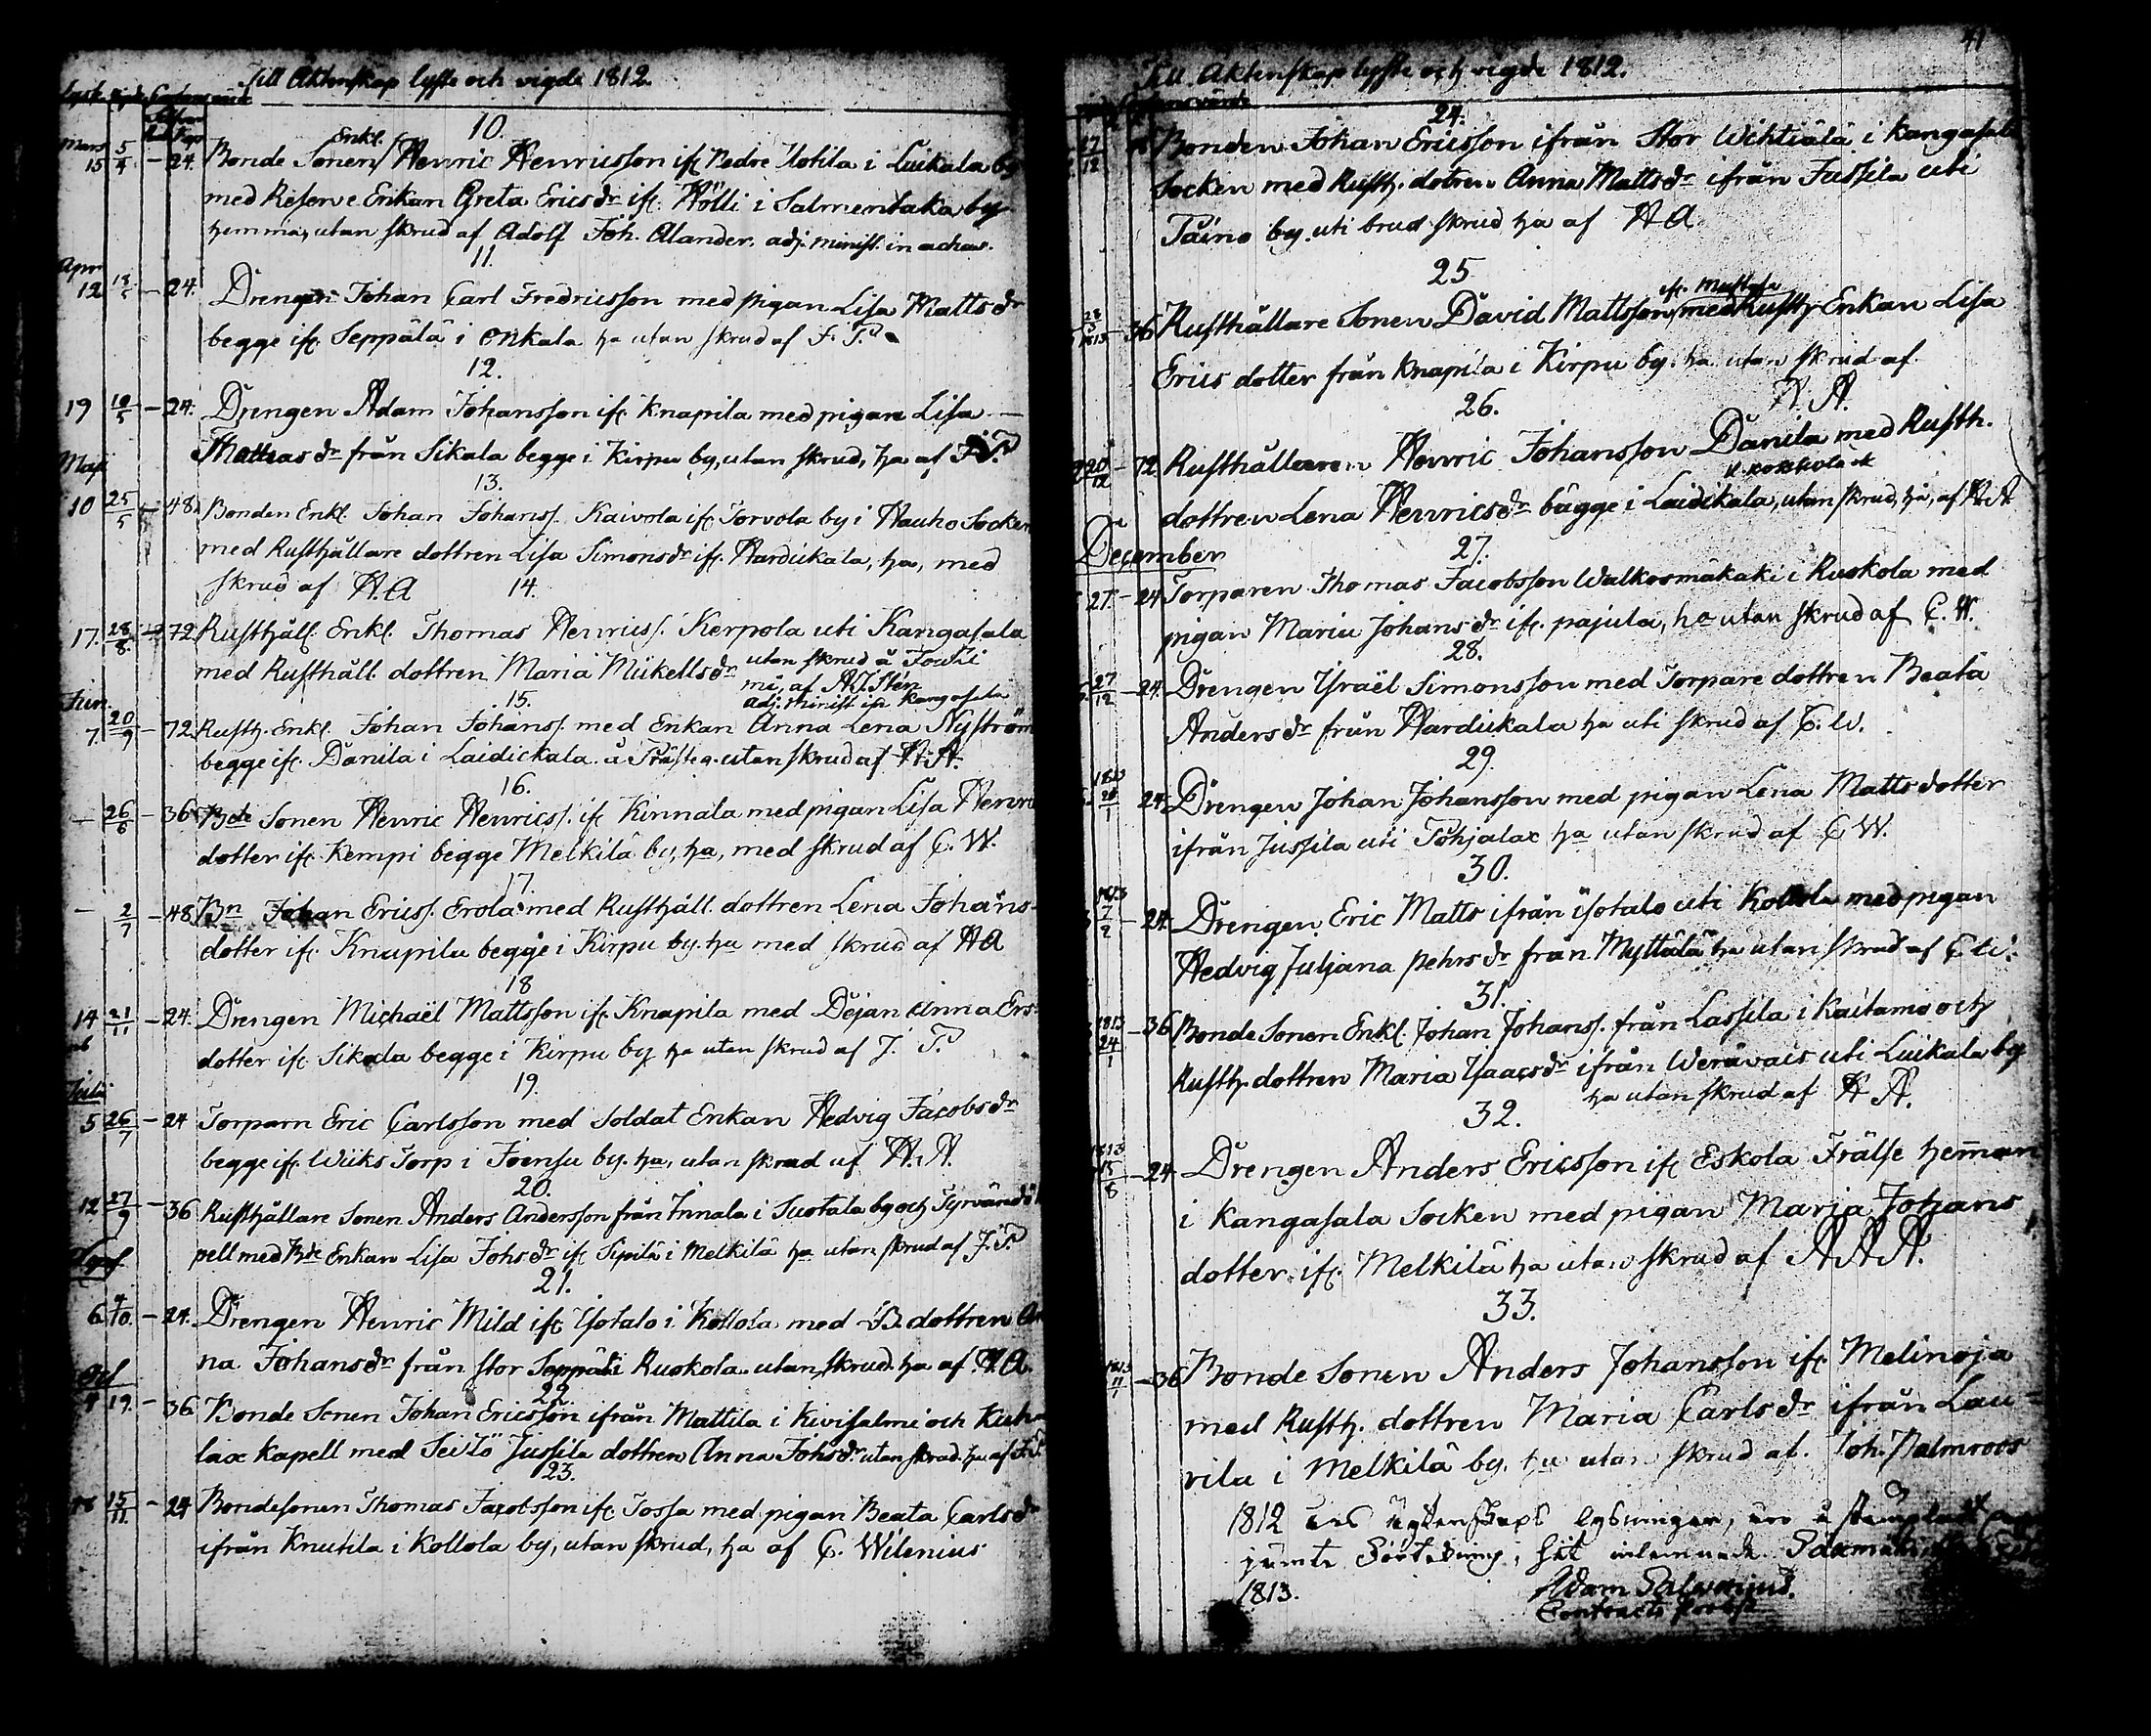 Till Äktenskap lyste och vigde 1812
10.
Mars 15 5/4 – 24. Bonde Sonen Enkl. Henric Henricsson ifr. Nedre Uotila i Luikala by
med Reserve Enkan Greta Ericsdr ifr. Hölli i Salmentaka by
hemma, utan skrud af Adolf Joh. Alander. adj. minist.
11.
Apr. 12 – 24. Drengen Johan Carl Fredricsson med pigan Lisa Mattsdr
begge ifr. Seppälä i Onkala ha utan skrud af J. T.
12.
19 10/5 – 24. Drengen Adam Johansson ifr. Knapila med pigan Lisa
Mattiasdr från Sikala begge i Kirpu by, utan skrud, ha af J. T.
Maji
13.
10 25/5 – 48. Bonden Enkl. Johan Johanss. Kaivola ifr. Torvola by i Hauho Socken
med Rusthållare dottren Lisa Simonsdr ifr. Hardickala, ha, med
skrud af H. A
14.
17. 28/8 – 72 Rusthåll. Enkl. Thomas Henricss. Kerpola uti Kangasala
med Rusthåll. dottren Maria Mickellsdr utan skrud å Toutii
mi, af A.J. Stén
adj. minist. ifr. Kangasala
15.
Jun. 7. 20/9 – 72. Rusth. Enkl. Johan Johanss. med Enkan Anna Lena Nyström
begge ifr. Danila i Laidickala. å Prästeg. utan skrud af H. A.
16.
– 26/6 – 36 Bde Sonen Henric Henricss. ifr. Kinnala med pigan Lisa Henric
dotter ifr. Kempi begge Melkilä by, ha, med skrud af C. W.
17.
– 2/7 – 48 Bn Johan Ericss. Erola med Rusthåll. dottren Lena Johans
dotter ifr. Knapila begge i Kirpu by. ha med skrud af H A
18
14 21/11 – 24. Drengen Michaël Mattsson ifr. Knapila med Dejan Anna Ers
dotter ifr. Sikala begge i Kirpu by ha utan skrud af J. T.
19.
Julii 5 26/7 – 24 Torparn Eric Carlsson med Soldat Enkan Hedvig Jacobsdr
begge ifr. Wiiks Torp i Joensu by. ha, utan skrud af H. A.
20.
12 27/9 – 36 Rusthållare Sonen Anders Andersson från Innala i Suotala by och Tyrvändö
pell med Bde Enkan Lisa Johsdr ifr. Sipilä i Melkilä ha utan skrud af J. T.
21.
Sept 6 4/10. – 24. Drengen Henric Mild ifr. Isotalo i Kollola med B. dottren An
na Johansdr från stor Seppälä i Ruokola utan skrud. ha af H. A
22.
Oct 19. – 36 Bonde Sonen Johan Ericsson ifrån Mattila i Kivisalmi och Kuh
lax Kapell med Jussila dottren Anna Johsdr utan skrud. ha af J. T.
23.
18 15/11. – 24 Bondesonen Thomas Jacobsson ifr. Jossa med pigan Beata Carlsdr
ifrån Knutila i Kollola by, utan skrud, ha af C. Wilenius
41
Till Äktenskap lyste och vigde 1812.
24.
27/12 Bonden Johan Ericsson ifrån Stor Wihtiälä i Kangasala
Socken med Rusth. dotren Anna Mattsdr ifrån Jussila uti
Taino by. uti brud skrud ha af H A.
25
1813 – 36 Rusthållare Sonen David Mattsson, ifr. Mattila med Rusth. Enkan Lisa
Erics dotter från Knapila i Kirpu by. ha utan skrud af
H. A.
26.
20/12 – 72. Rusthållaren Henric Johansson Danila med Rusth.
dottren Lena Henricsdr bägge i Laidikala, utan skrud, ha, af H. A
December
27.
27. – 24 Torparen Thomas Jacobsson Walkosmäkaki i Ruokola med
pigan Maria Johansdr ifr. pajula, ha utan skrud af C. W.
28.
27/12 – 24. Drengen Israël Simonsson med Torpare dottren Beata
Andersdr från Hardickala ha uti skrud af C. W.
29.
24. Drengen Johan Johansson med pigan Lena Matts dotter
ifrån Jussila uti Pohjalax ha utan skrud af C W.
30.
1813 7/2 – 24. Drengen Eric Matts ifrån Isotalo uti Kollola med pigan
Hedvig Juljana Pehrsdr från Myttälä ha utan skrud af C. W.
31.
1813 24/1 – 36 Bonde Sonen Enkl. Johan Johanss. från Lassila i Kaitamo och
Rusth. dottren Maria Isaacsdr ifrån Werävais uti Luikala by
ha utan skrud af H A.
32.
1813 15/8 – 24 Drengen Anders Ericsson ifr. Eskola Frälse hemman
i Kangasala Socken med pigan Maria Johans
dotter ifr. Melkilä ha utan skrud af A A A.
33.
1813 – 36 Bonde Sonen Anders Johansson ifr. Melinoja
med Rusth. dottren Maria Carlsdr ifrån Lau=
rila i Melkilä by. ha utan skrud af. Joh. Malmroos
1812 års Ägtenskaps lysningar, äro å stämplat
jemte förtekning, hit inlemnade. Sääxmäki
1813. Adam Salvenius.
Contracts Probst